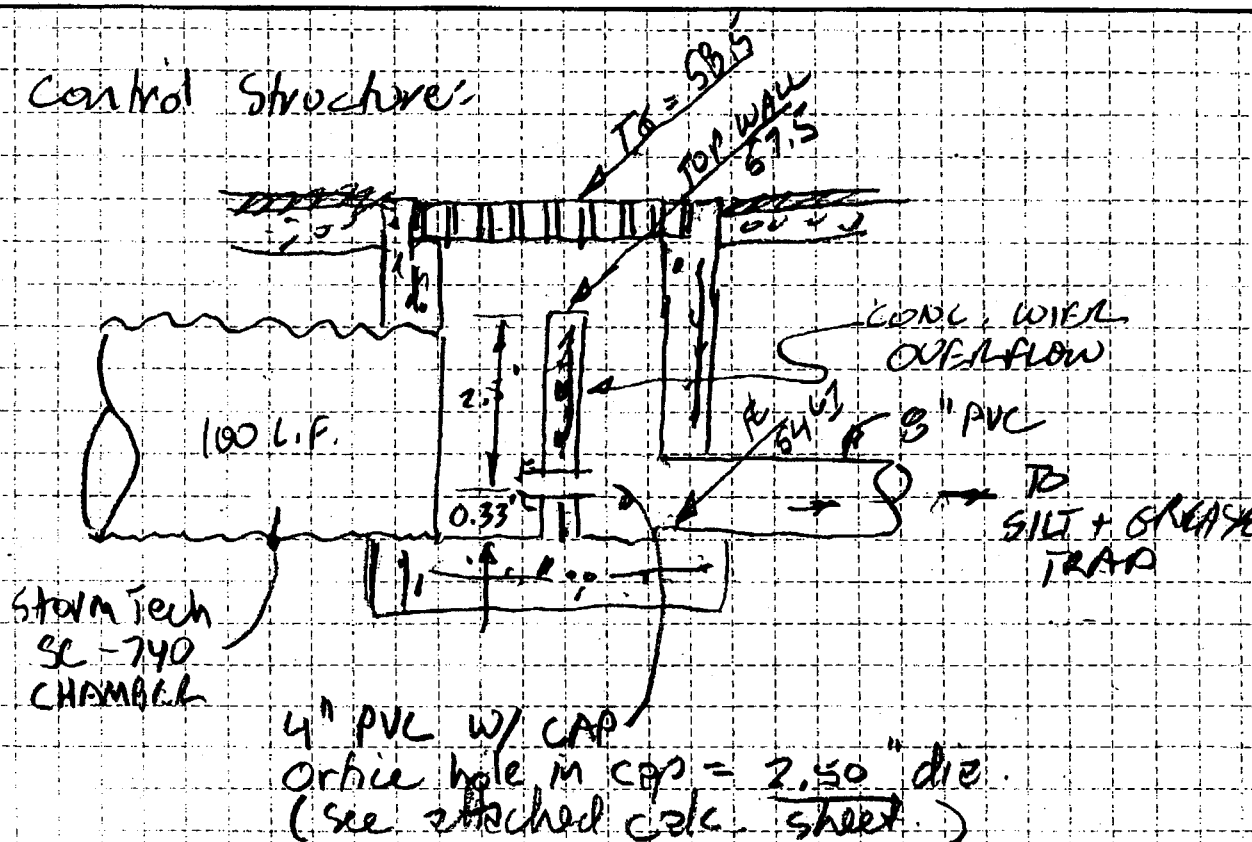 Control Structure:
TG = 58.5
TOP WALL
57.5
CONC. WIER
OVERFLOW
8" PVC
2.5'
100 L.F.
0.33'
TO
SILT + GREASE
TRAP
StormTech
SC-740
CHAMBER
4" PVC W/ CAP
Orfice hole in cap = 2.50" dia.
(see attached calc. sheet.)